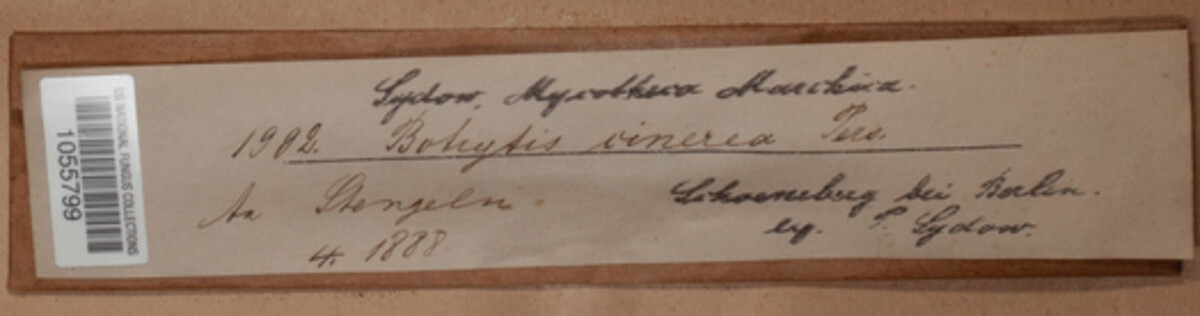 Sydow, Mycotheca Marchica.
1902. Botrytis cinerea Pers.
An Stengeln.
4. 1888
Schoeneberg bei Berlin.
leg. P. Sydow.
US NATIONAL FUNGUS COLLECTIONS
1055799